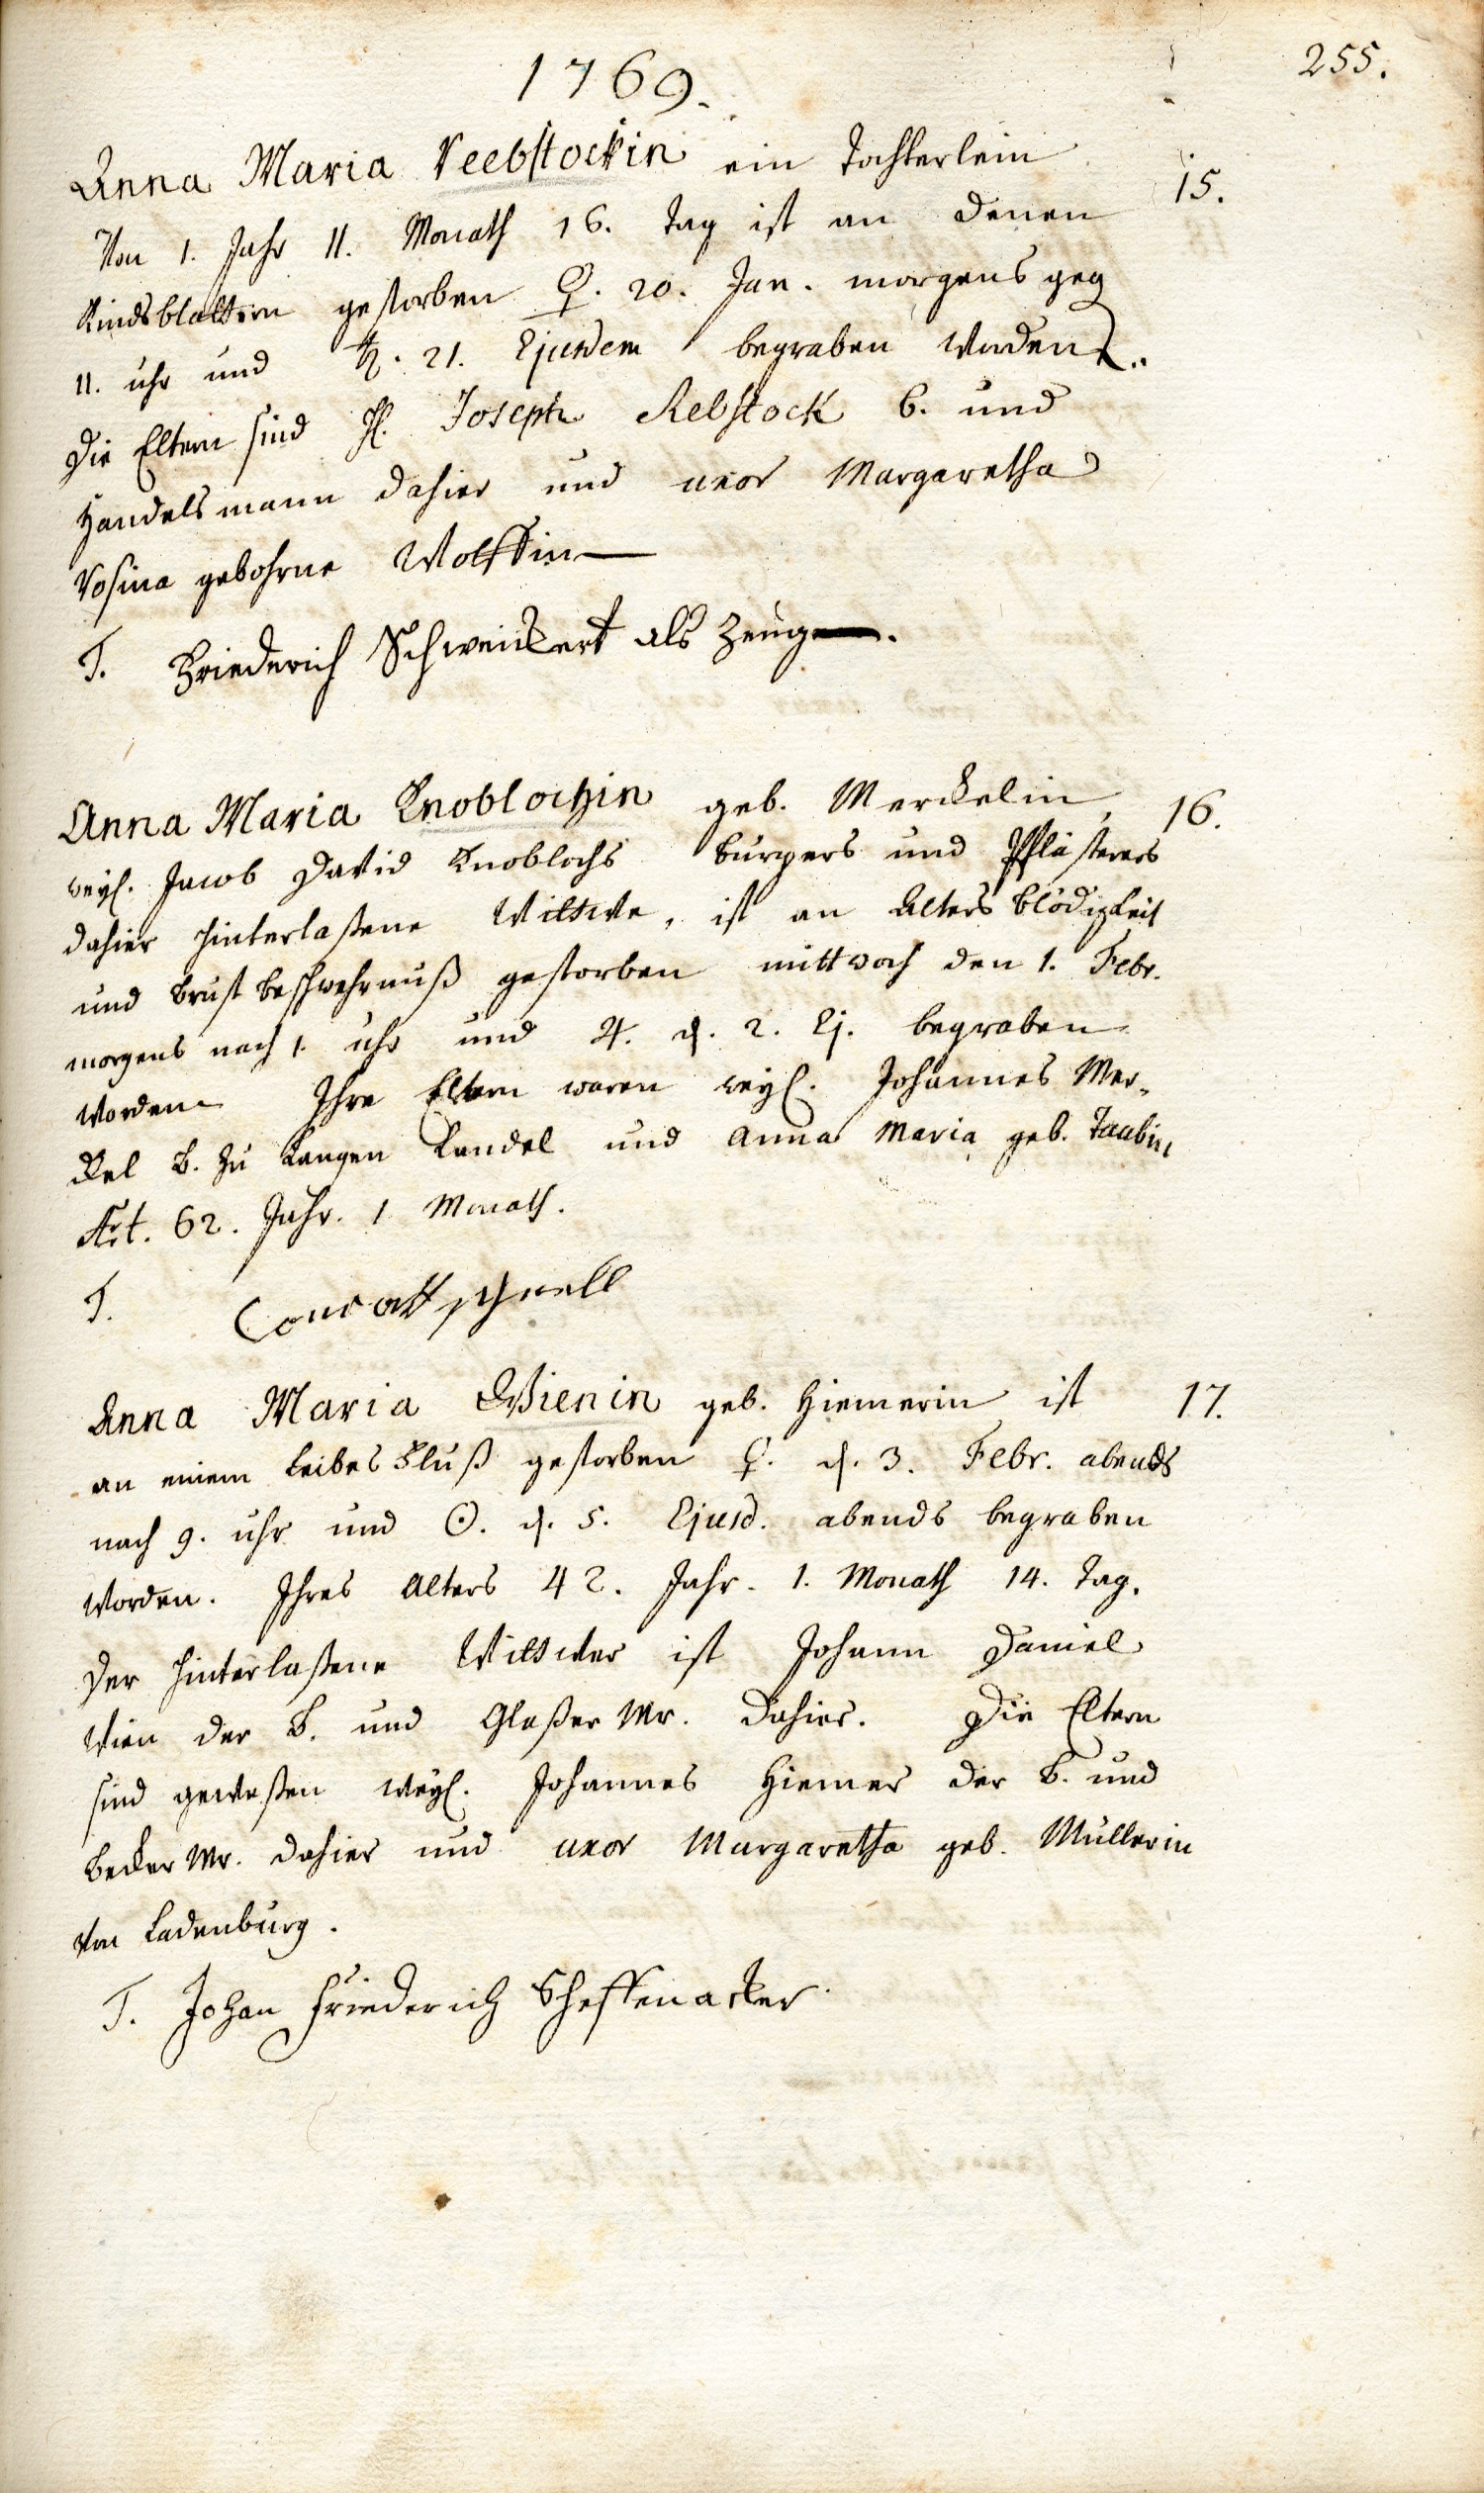 255.
1769.
Anna Maria Reebstockin ein Töchterlein 15.
Von 1. Jahr 11. Monath 16. Tag ist an denen
Kindsblattern gestorben ♀. 20. Jan. morgens geg
11. uhr und ♄. 21. Ejusdem begraben worden.
Die Eltern sind H. Joseph Rebstock b. und
Handelsmann dahier und uxor Margaretha
Rosina gebohrne Wolffin
T. Friederich Schweickert als Zeuge.
Anna Maria Knoblochin geb. Merckelin, 16.
weyl. Jacob David Knoblochs burgers und Pflästerers
dahier hinterlaßene Wittwe, ist an Alters blödigkeit
und brust beschwehrnuß gestorben mittwoch den 1. Febr.
morgens nach 1. uhr und ♃. d. 2. Ej. begraben
worden. Ihre Eltern waren weyl. Johannes Mer-
ckel b. zu Langen Kandel und Anna Maria geb. Taubin,
Æt. 62. Jahr. 1 Monath.
T. Conratt schnell
Anna Maria Wienin geb. Hiemerin ist 17.
an einem Leibes Fluß gestorben ♀. d. 3. Febr. abends
nach 9. uhr und ☉. d. 5. Ejusd. abends begraben
worden. Ihres Alters 42. Jahr. 1. Monath 14. Tag.
Der hinterlaßene Wittwer ist Johann Daniel
Wien der b. und Glaßer Mr. dahier. Die Eltern
sind geweßen weyl. Johannes Hiemer der b. und
becker Mr. dahier und uxor Margaretha geb. Müllerin
von Ladenburg.
T. Johan Friederich Scheffenacker